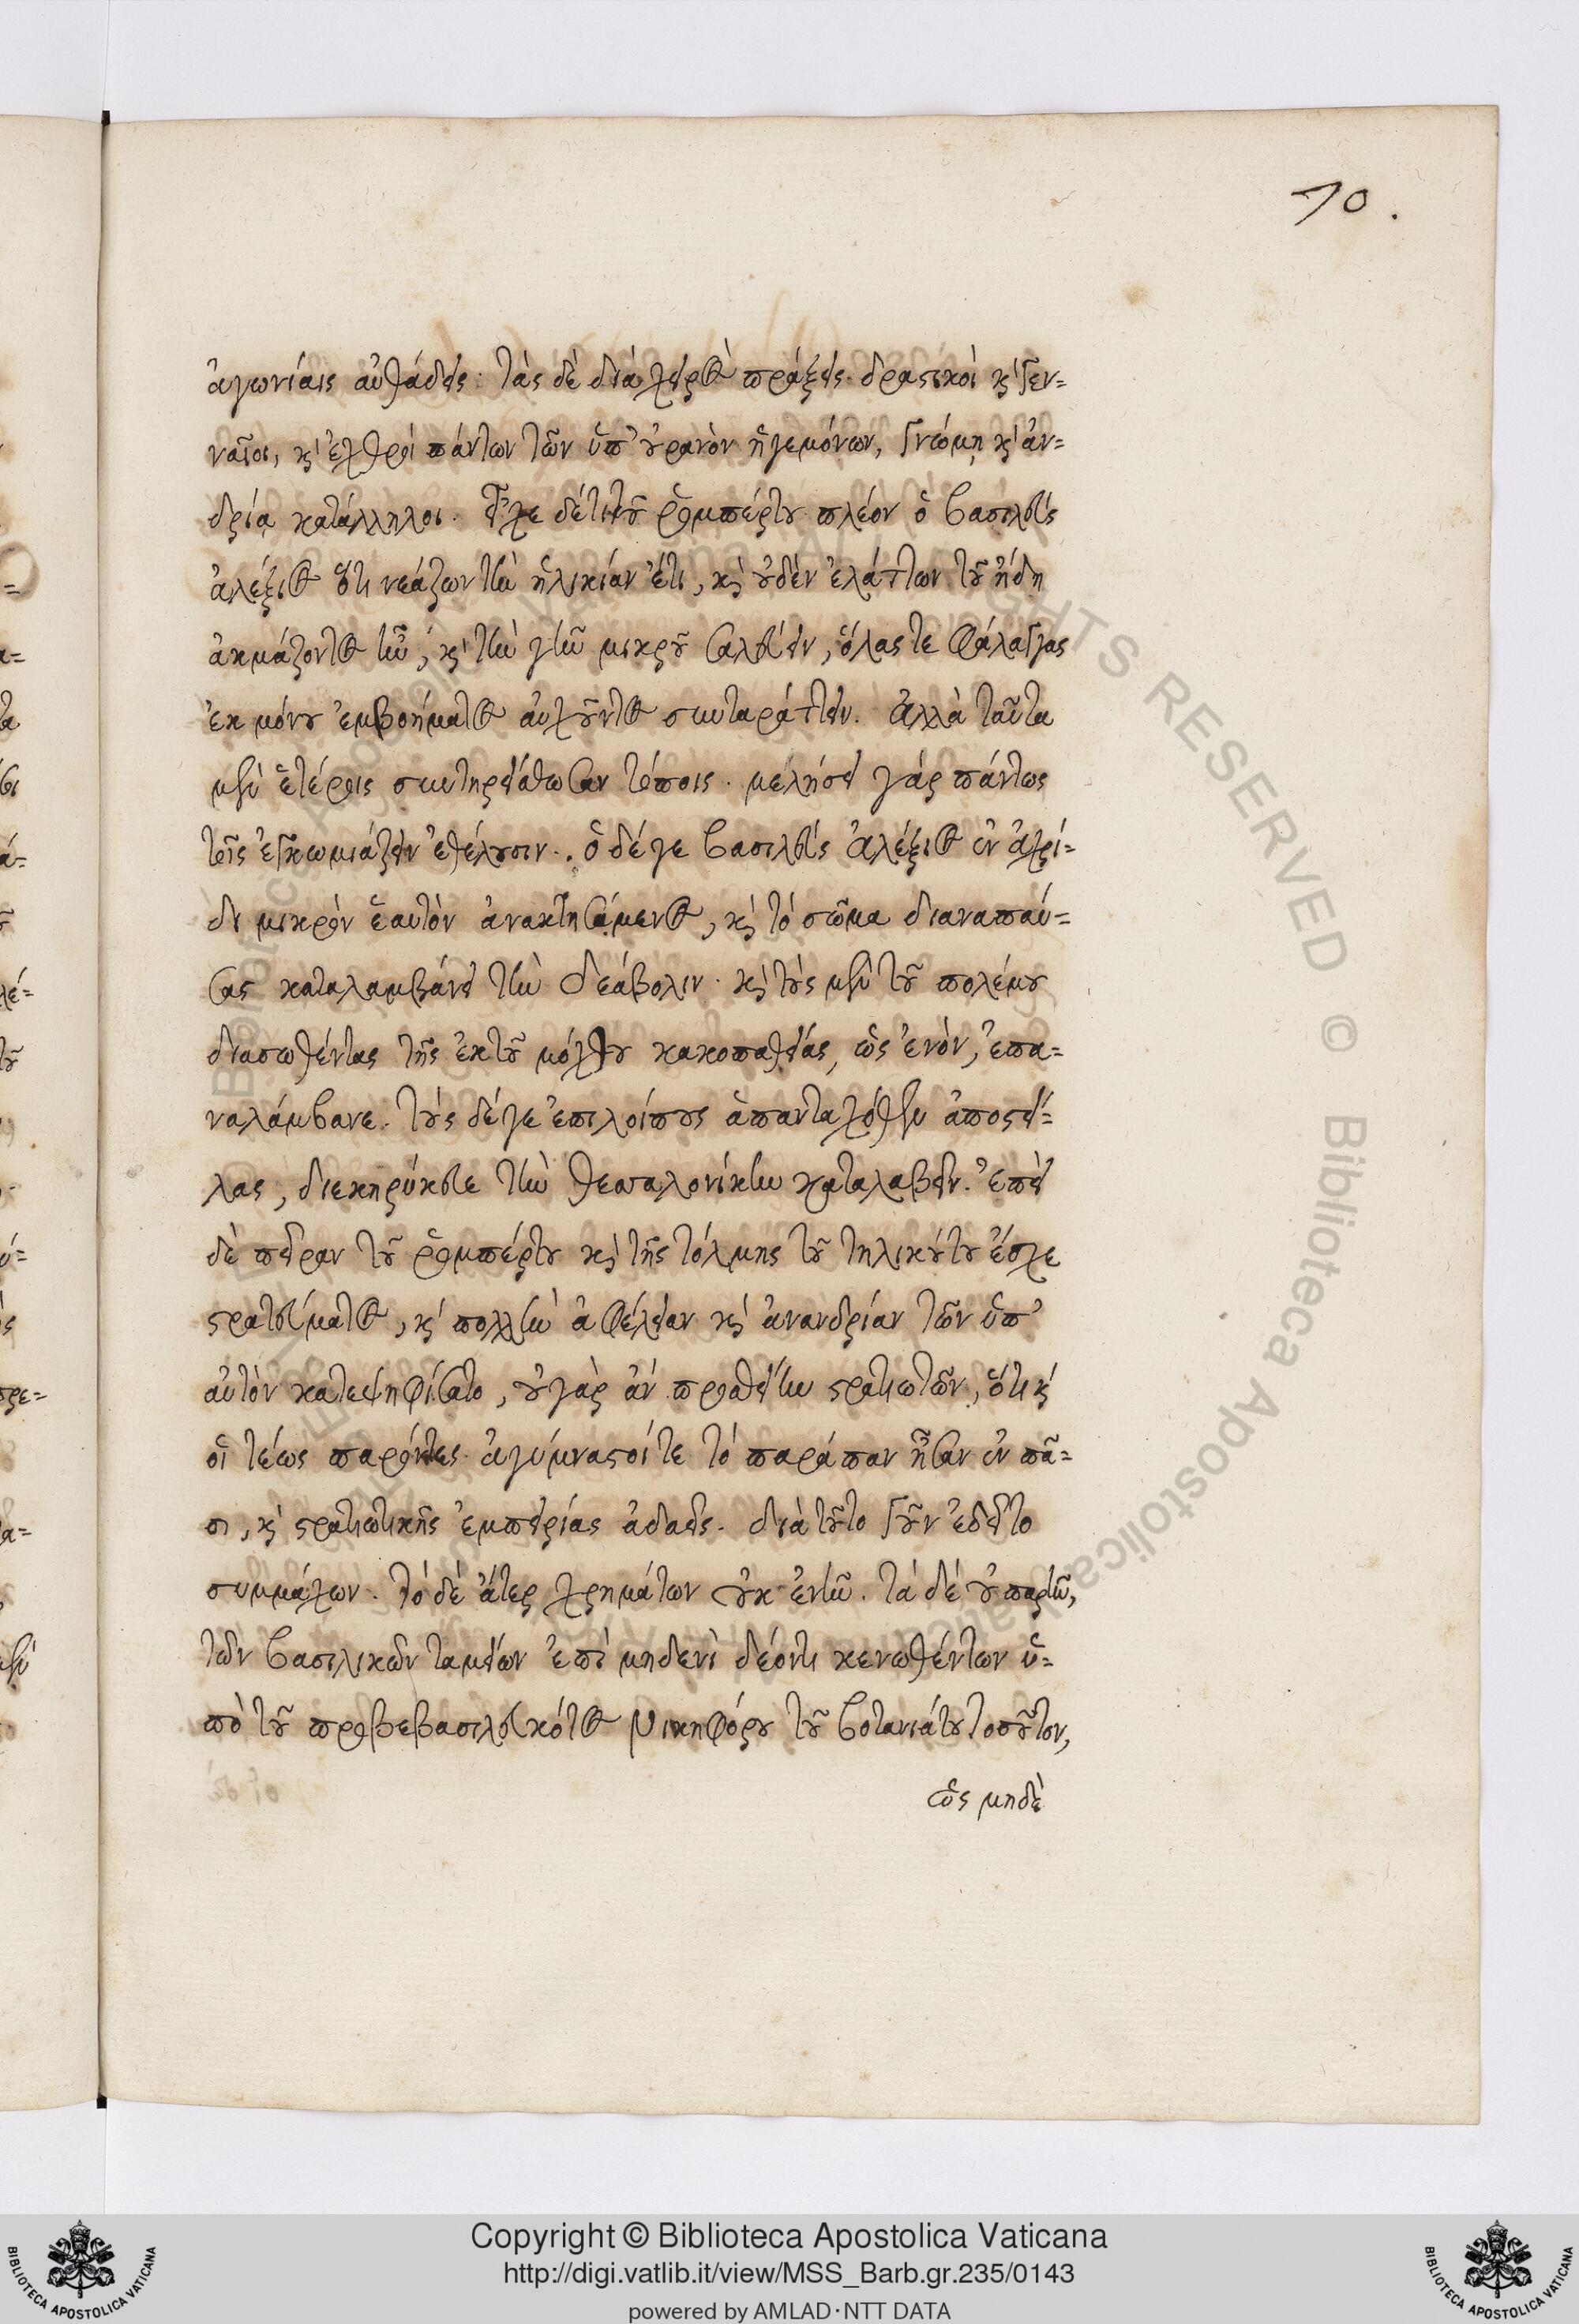 70.
ἀγωνίαις αὐθάδεις. τὰς δὲ διὰ χειρὸς πράξεις δραστικοὶ κ̀ γεν=
ναῖοι, κ̀ ἐχθροὶ πάντων τῶν ὑπ' οὐρανὸν ἡγεμόνων, γνώμῃ κ̀ ἀν=
δρίᾳ κατάλληλοι. εἶχε δέ τι τοῦ ῥομπέρτου πλέον ὁ βασιλεὺς
ἀλέξιος ὅτι νεάζων τὴν ἡλικίαν ἔτι, κ̀ οὐδὲν ἐλάττων τοῦ ἤδη
ἀκμάζοντος ἦν, κ̀ τὴν γῆν μικροῦ σαλεύειν, ὅλας τε φάλαγγας
ἐκ μόνου ἐμβοήματος αὐχοῦντος συνταράττειν. ἀλλὰ ταῦτα
μὲν ἑτέροις συντηρείσθωσαν τόποις. μελήσει γὰρ πάντως
τοῖς ἐγκωμιάζειν ἐθέλουσιν. ὁ δέ γε βασιλεὺς ἀλέξιος ἐν ἀχρί=
δι μικρὸν ἑαυτὸν ἀνακτησάμενος, κ̀ τὸ σῶμα διαναπαύ=
σας καταλαμβάνει τὴν δεάβολιν. κ̀ τοὺς μὲν τοῦ πολέμου
διασωθέντας τῆς ἐκ τοῦ μόχθου κακοπαθείας, ὡς ἐνὸν, ἐπα=
ναλάμβανε. τοὺς δέ γε ἐπιλοίπους ἁπανταχόθεν ἀποστεί=
λας, διεκηρύκευε τὴν θεσσαλονίκην καταλαβεῖν. ἐπεὶ
δὲ πεῖραν τοῦ ῥομπέρτου κ̀ τῆς τόλμης τοῦ τηλικούτου ἔσχε
στρατεύματος, κ̀ πολλὴν ἀφέλειαν κ̀ ἀνανδρίαν τῶν ὑπ'
αὐτὸν κατεψηφίσατο, οὐ γὰρ ἂν προσθείην στρατιωτῶν, ὅτι κ̀
οἱ τέως παρόντες ἀγύμναστοί τε τὸ παράπαν ἦσαν ἐν πᾶ=
σι, κ̀ στρατιωτικῆς ἐμπειρίας ἀδαεῖς. διὰ τοῦτο γοῦν ἐδεῖτο
συμμάχων. τὸ δὲ ἄτερ χρημάτων οὐκ ἐνῆν. τὰ δὲ οὐ παρῆν,
τῶν βασιλικῶν ταμείων ἐπὶ μηδενὶ δέοντι κενωθέντων ὑ=
πὸ τοῦ προβεβασιλευκότος Νικηφόρου τοῦ βοτανιάτου τοσοῦτον,
ὡς μηδὲ
Copyright © Biblioteca Apostolica Vaticana
http://digi.vatlib.it/view/MSS_Barb.gr.235/0143
powered by AMLAD·NTT DATA